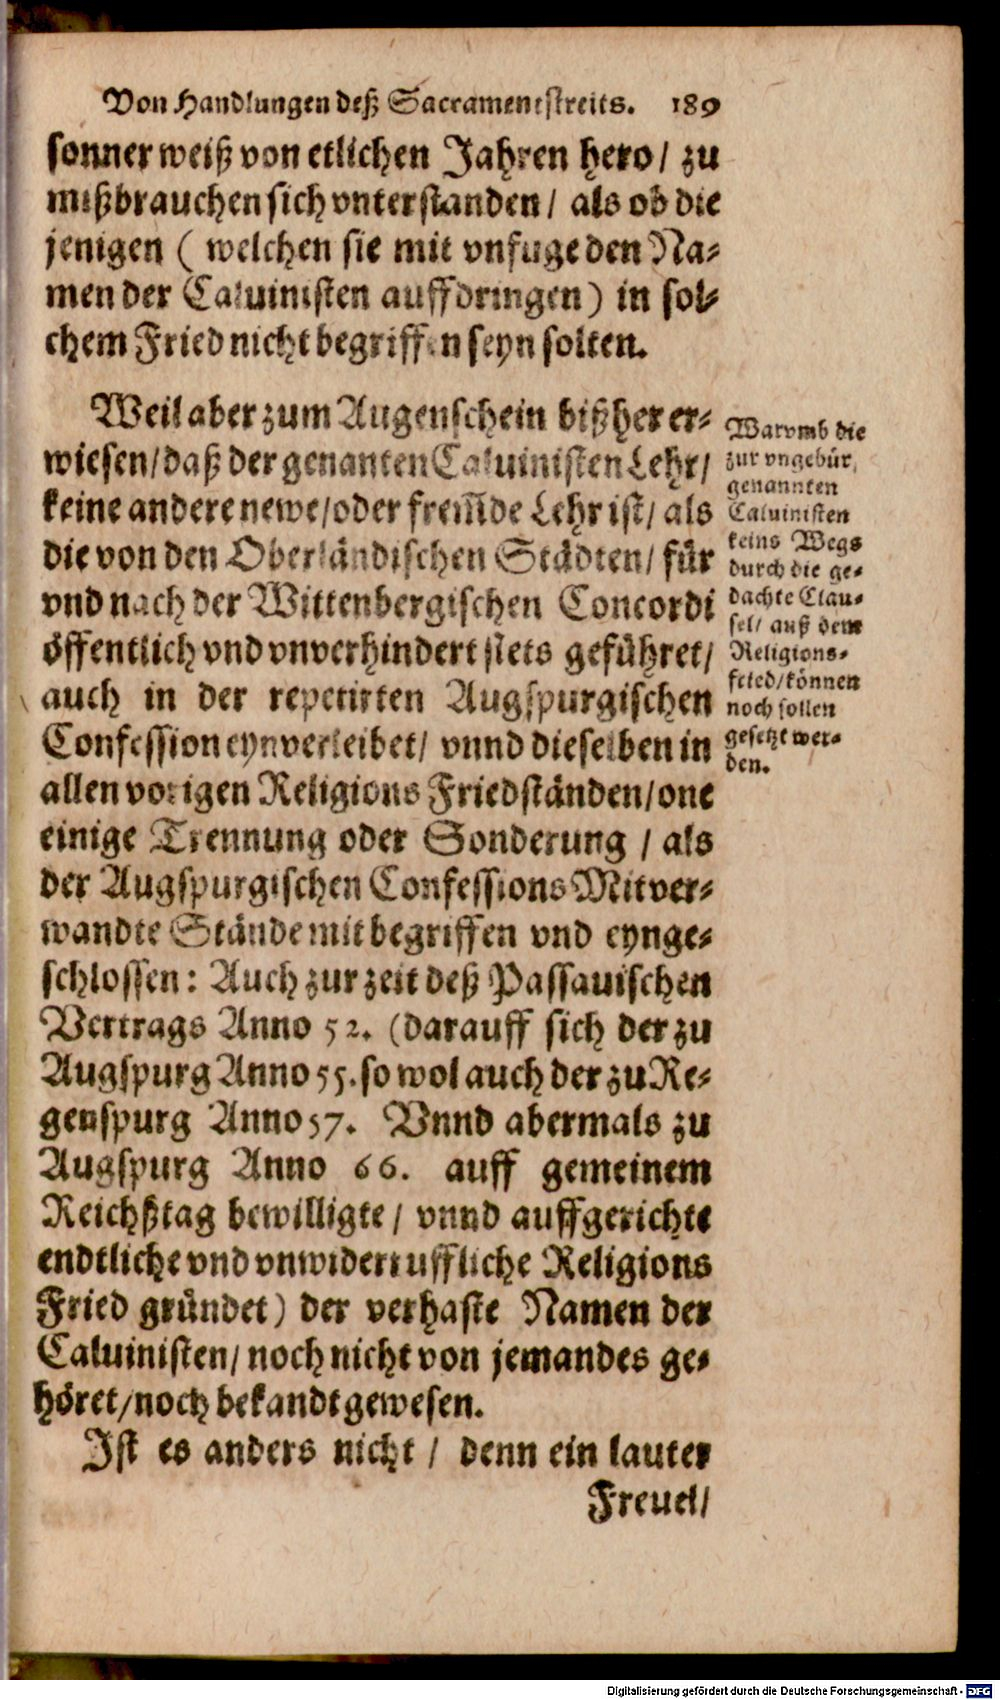 Von Handlungen deß Sacramentstreits. 189
sonner weiß von etlichen Jahren hero / zu
mißbrauchen sich vnterstanden / als ob die
jenigen ( welchen sie mit vnfuge den Na-
men der Caluinisten auffdringen ) in sol-
chem Fried nicht begriffen seyn solten.
Weil aber zum Augenschein bißher er-
wiesen / daß der genanten Caluinisten Lehr /
keine andere newe / oder frem̃de Lehr ist / als
die von den Oberländischen Städten / für
vnd nach der Wittenbergischen Concordi
öffentlich vnd vnverhindert stets geführet /
auch in der repetirten Augspurgischen
Confession eynverleibet / vnnd dieselben in
allen vorigen Religions Friedständen / one
einige Trennung oder Sonderung / als
der Augspurgischen Confessions Mitver-
wandte Stände mit begriffen vnd eynge-
schlossen : Auch zur zeit deß Passauischen
Vertrags Anno 52. (darauff sich der zu
Augspurg Anno 55. so wol auch der zu Re-
genspurg Anno 57. Vnnd abermals zu
Augspurg Anno 66. auff gemeinem
Reichßtag bewilligte / vnnd auffgerichte
endtliche vnd vnwiderruffliche Religions
Fried gründet ) der verhaste Namen der
Caluinisten / noch nicht von jemandes ge-
höret / noch bekandt gewesen.
Ist es anders nicht / denn ein lauter
Freuel /
Warvmb die
zur vngebür,
genannten
Caluinisten
keins Wegs
durch die ge-
dachte Clau-
sel / auß dem
Religions-
fried / können
noch sollen
gesetzt wer-
den.
Digitalisierung gefördert durch die Deutsche Forschungsgemeinschaft - DFG